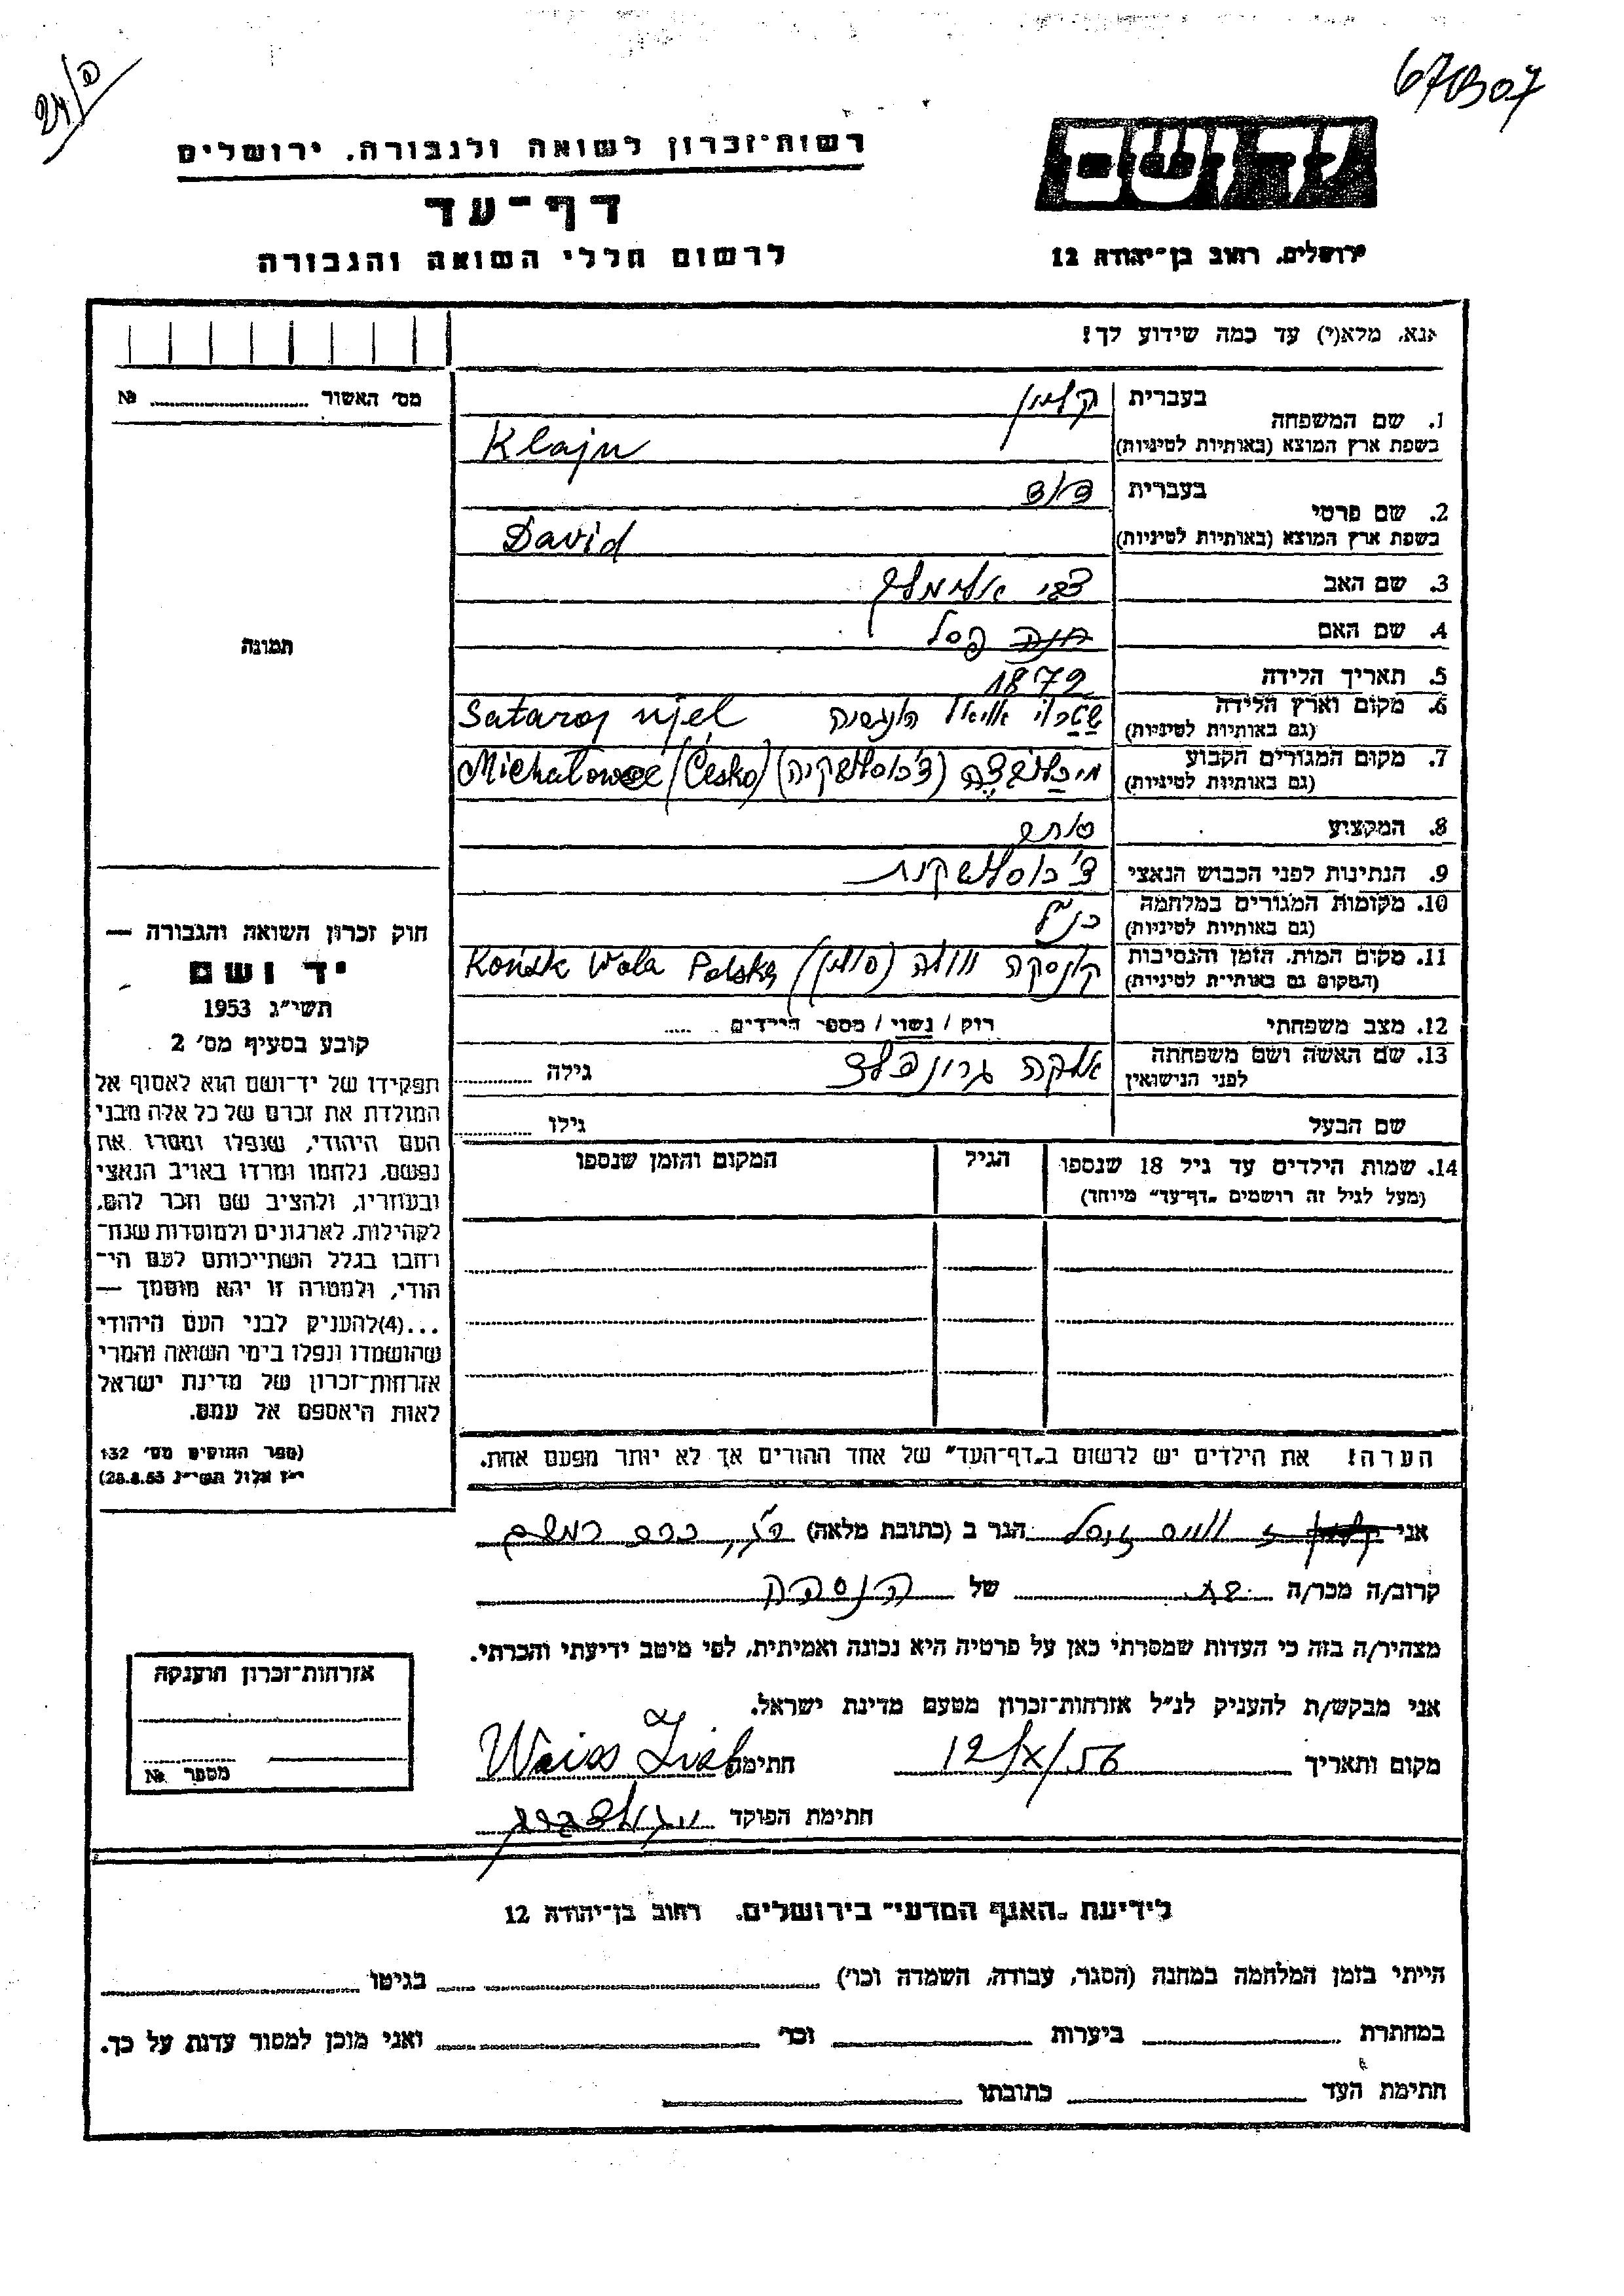 67807
רשות־זכרון לשואה ולגבורה, ירושלים
יד ושם
דף־עד
לרשום חללי השואה והגבורה
ירושלים, רחוב בן־יהודה 12
אנא, מלא(י) עד כמה שידוע לך!
מס׳ האשור № 
1. שם המשפחה
בעברית קליין
בשפת ארץ המוצא (באותיות לטיניות) Klajn
2. שם פרטי
בעברית דוד
בשפת ארץ המוצא (באותיות לטיניות) David
3. שם האב צבי אלימלך
4. שם האם פסל
תמונה
5. תאריך הלידה 1879
6. מקום וארץ הלידה
(גם באותיות לטיניות) Sataroj ujel
7. מקום המגורים הקבוע
(גם באותיות לטיניות) (צ׳כוסלובקיה) Michalowce (Česko)
8. המקצוע סוחר
9. הנתינות לפני הכבוש הנאצי צ׳כוסלובקית
10. מקומות המגורים במלחמה כנ״ל
(גם באותיות לטיניות)
11. מקום המות, הזמן והנסיבות
(המקום גם באותיות לטיניות) קונסקה וולה (פולין) Końsk Wola Polska
12. מצב משפחתי רוק / נשוי / מספר הילדים
13. שם האשה ושם משפחתה
לפני הנישואין גרונפלד גילה
שם הבעל גילו
14. שמות הילדים עד גיל 18 שנספו הגיל המקום והזמן שנספו
(מעל לגיל זה רושמים „דף־עד״ מיוחד)
חוק זכרון השואה והגבורה —
יד ושם
תשי״ג 1953
קובע בסעיף מס׳ 2
תפקידו של יד־ושם הוא לאסוף אל
המולדת את זכרם של כל אלה מבני
העם היהודי, שנפלו ומסרו את
נפשם, נלחמו ומרדו באויב הנאצי
ובעוזריו, ולהציב שם וזכר להם,
לקהילות, לארגונים ולמוסדות שנח־
רחבו בגלל השתייכותם לעם הי־
הודי, ולמטרה זו יהא מוסמך —
...(4)להעניק לבני העם היהודי
שהושמדו ונפלו בימי השואה והמרי
אזרחות־זכרון של מדינת ישראל
לאות היאספם אל עמם.
(ספר החוקים מס׳ 132
י״ז אלול תשי״ג 28.8.53)
הערה! את הילדים יש לרשום ב„דף־העד״ של אחד ההורים אך לא יותר מפעם אחת.
אני הגר ב (כתובת מלאה)
קרוב/ה מכר/ה של הנספה
מצהיר/ה בזה כי העדות שמסרתי כאן על פרטיה היא נכונה ואמיתית, לפי מיטב ידיעתי והכרתי.
אני מבקש/ת להעניק לנ״ל אזרחות־זכרון מטעם מדינת ישראל.
מקום ותאריך 12/X/56 חתימה Weiss
חתימת הפוקד
אזרחות־זכרון הוענקה
מספר №
לידיעת „האגף המדעי״ בירושלים, רחוב בן־יהודה 12
הייתי בזמן המלחמה במחנה (הסגר, עבודה, השמדה וכו׳) בגיטו
במחתרת ביערות וכו׳ ואני מוכן למסור עדות על כך.
חתימת העד כתובתו